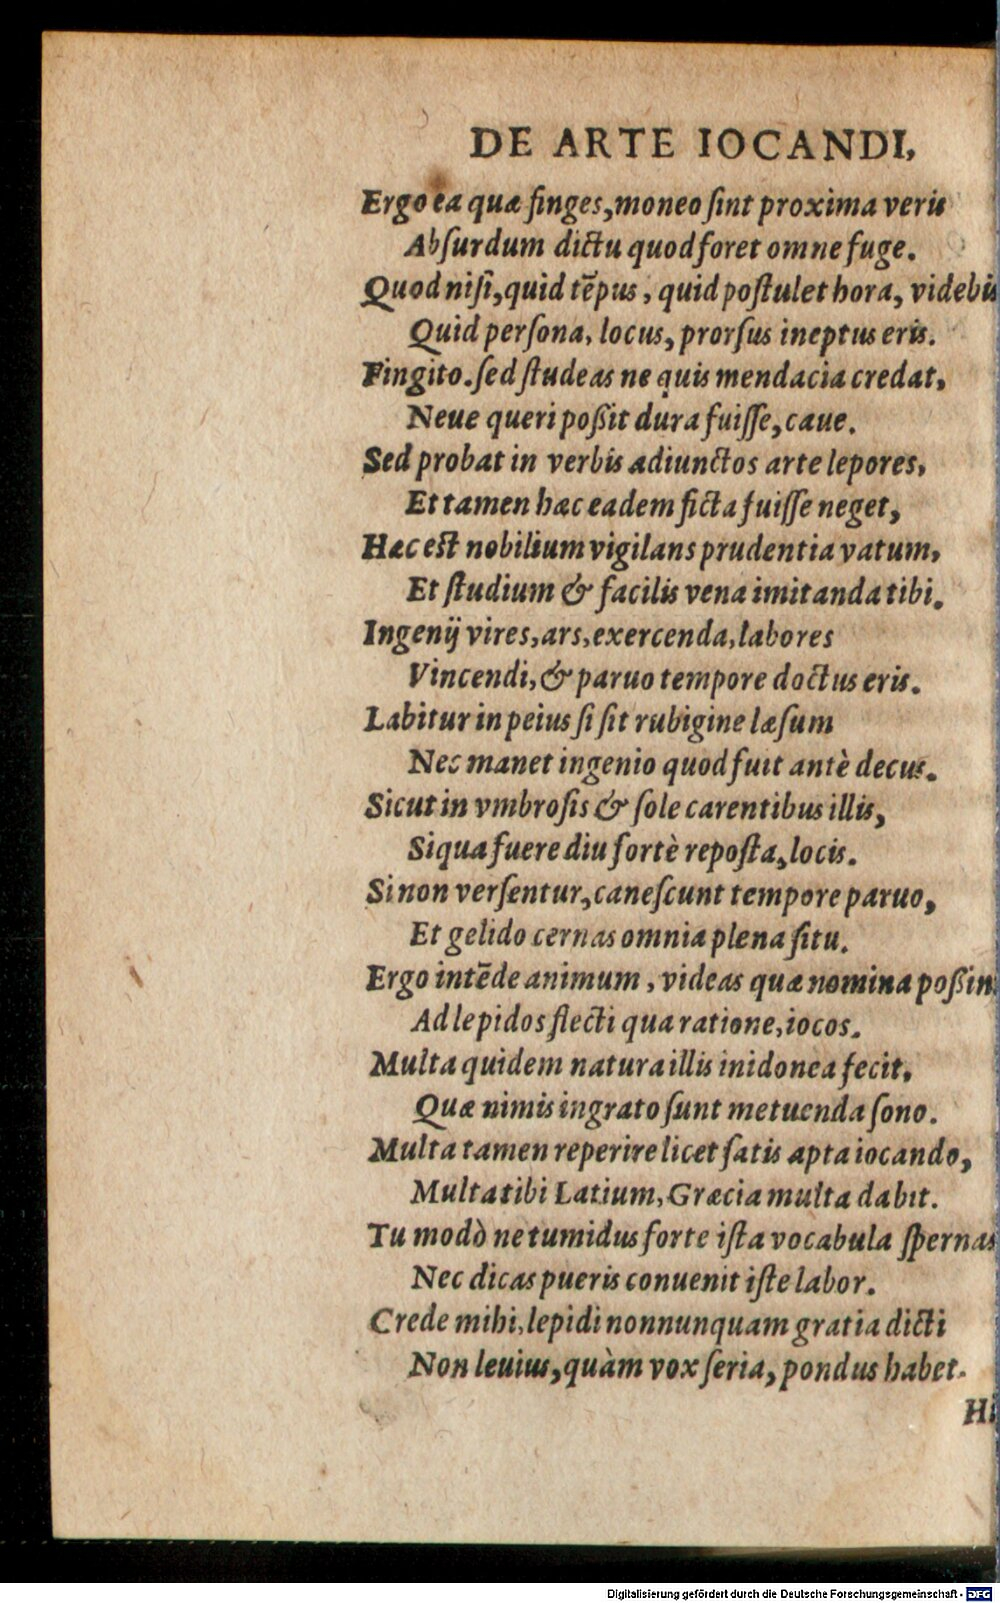 DE ARTE IOCANDI,
Ergo ea quæ finges, moneo ſint proxima veris
Abſurdum dictu quod foret omne fuge.
Quod niſi, quid tẽpus, quid poſtulet hora, videbis
Quid perſona, locus, prorſus ineptus eris.
Fingito. ſed ſtudeas ne quis mendacia credat,
Neue queri poßit dura fuiſſe, caue.
Sed probat in verbis adiunctos arte lepores,
Et tamen hæc eadem ficta fuiſſe neget,
Hæc eſt nobilium vigilans prudentia vatum,
Et ſtudium & facilis vena imitanda tibi.
Ingenij vires, ars, exercenda, labores
Vincendi, & paruo tempore doctus eris.
Labitur in peius ſi ſit rubigine læſum
Nec manet ingenio quod fuit antè decus.
Sicut in vmbroſis & ſole carentibus illis,
Siqua fuere diu fortè repoſta, locis.
Si non verſentur, caneſcunt tempore paruo,
Et gelido cernas omnia plena ſitu.
Ergo intẽde animum, videas quæ nomina poßin
Ad lepidos flecti qua ratione, iocos.
Multa quidem natura illis inidonea fecit,
Quæ nimis ingrato ſunt metuenda ſono.
Multa tamen reperire licet ſatis apta iocando,
Multa tibi Latium, Græcia multa dabit.
Tu modò ne tumidus forte iſta vocabula ſpernas
Nec dicas pueris conuenit iſte labor.
Crede mihi, lepidi nonnunquam gratia dicti
Non leuius, quàm vox ſeria, pondus habet.
Hi
Digitalisierung gefördert durch die Deutsche Forschungsgemeinschaft - DFG